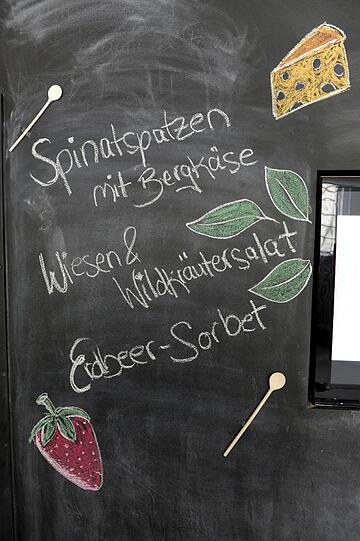 Spinatspatzen
mit Bergkäse
Wiesen &
Wildkräutersalat
Erdbeer-Sorbet